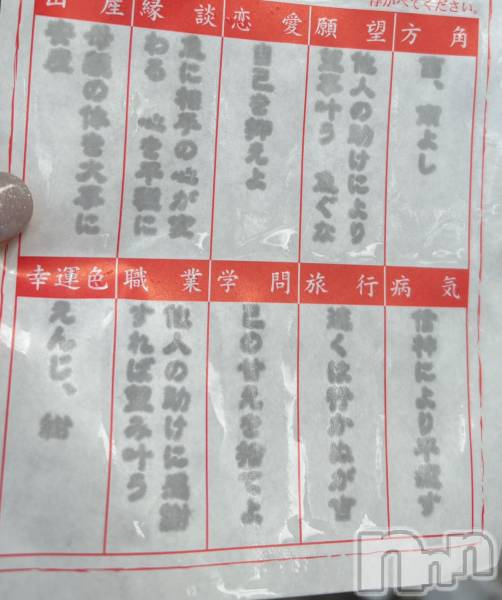 浮かべてください。
方角
西、東よし
願望
他人の助けにより
望事叶う 急ぐな
恋愛
自己を抑えよ
縁談
急に相手の心が変
わる 心を平穏に
出産
母親の体を大事に
安産
病気
信神により平癒す
旅行
遠くは行かぬが吉
学問
己の甘えを捨てよ
職業
他人の助けに感謝
すれば望み叶う
幸運色
えんじ、紺